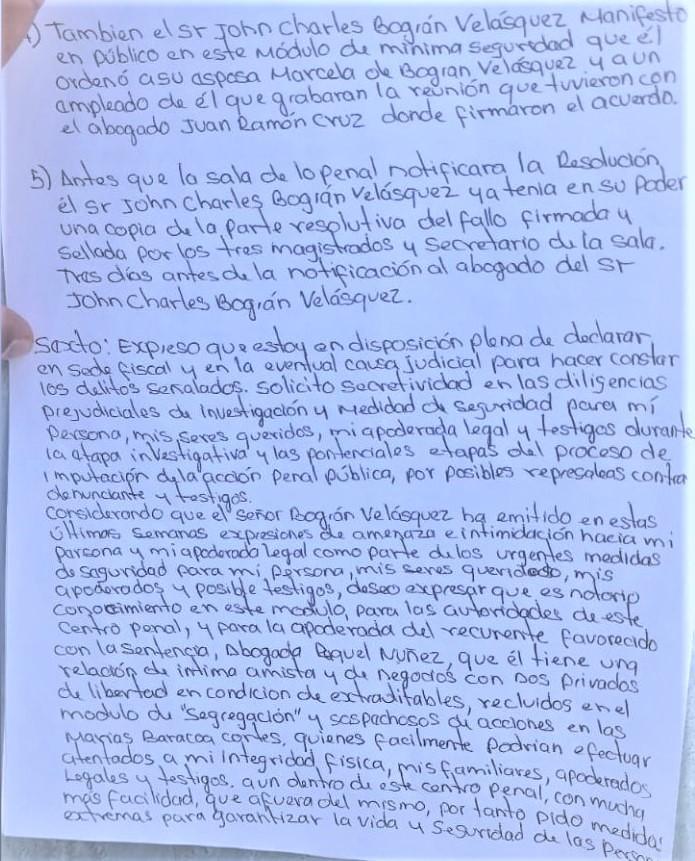 ) Tambien el sr John charles Bográn Velásquez Manifesto
en público en este Módulo de mínima seguridad que él
ordenó a su asposa Marcela de Bogran Velásquez y a un
ampleado de él que grabaran la reunión que tuvieron con
el abogado Juan Ramón Cruz donde firmaron el acuerdo.
5) Antes que la sala de lo penal notificara la Resolución,
él sr John Charles Bográn Velásquez ya tenia en su Poder
una copia de la parte resolutiva del fallo firmada y
sellada por los tres magistrados y Secretario de la sala.
Tres días antes de la notificación al abogado del Sr
John Charles Bográn Velásquez.
Sexto: Expreso que estoy en disposición plena de declarar
en sede fiscal y en la eventual causa judicial para hacer constar
los delitos señalados. solicito secretividad en las diligencias
prejudiciales de investigación y Medidad de seguridad para mí
Persona, mis seres queridos, mi apoderada legal y testigos durante
la atapa investigativa y las pontenciales etapas del proceso de
imputación de la acción penal pública, por posibles represaleas contra
denunciante y testigos.
considerando que el señor Bográn Velásquez ha emitido en estas
últimas semanas expresiones de amenaza e intimidación hacia mi
parsona y mi apoderada legal como parte de los urgentes medidas
de saguridad para mi persona, mis seres queridos, mis
apoderados y posible testigos, deseo expresar que es notorio
conocimiento en este modulo, para las autoridades de este
Centro penal, y para la apoderada del recurente favorecido
con la sentencia, Abogada Raquel Nuñez, que él tiene una
relación de intima amista y de negocios con Dos Privados
de libertad en condicion de extraditables, recluidos en el
modulo de "Segregación" y sospachosos de acciones en las
Marias Baracoa cortes, quienes facilmente podrian efectuar
atentados a mi integridad física, mis familiares, apoderados
Legales y testigos. aun dentro de este centro penal, con mucha
mas facilidad, que afuera del mismo, por tanto pido medidas
extremas para garantizar la vida y Seguridad de las Person